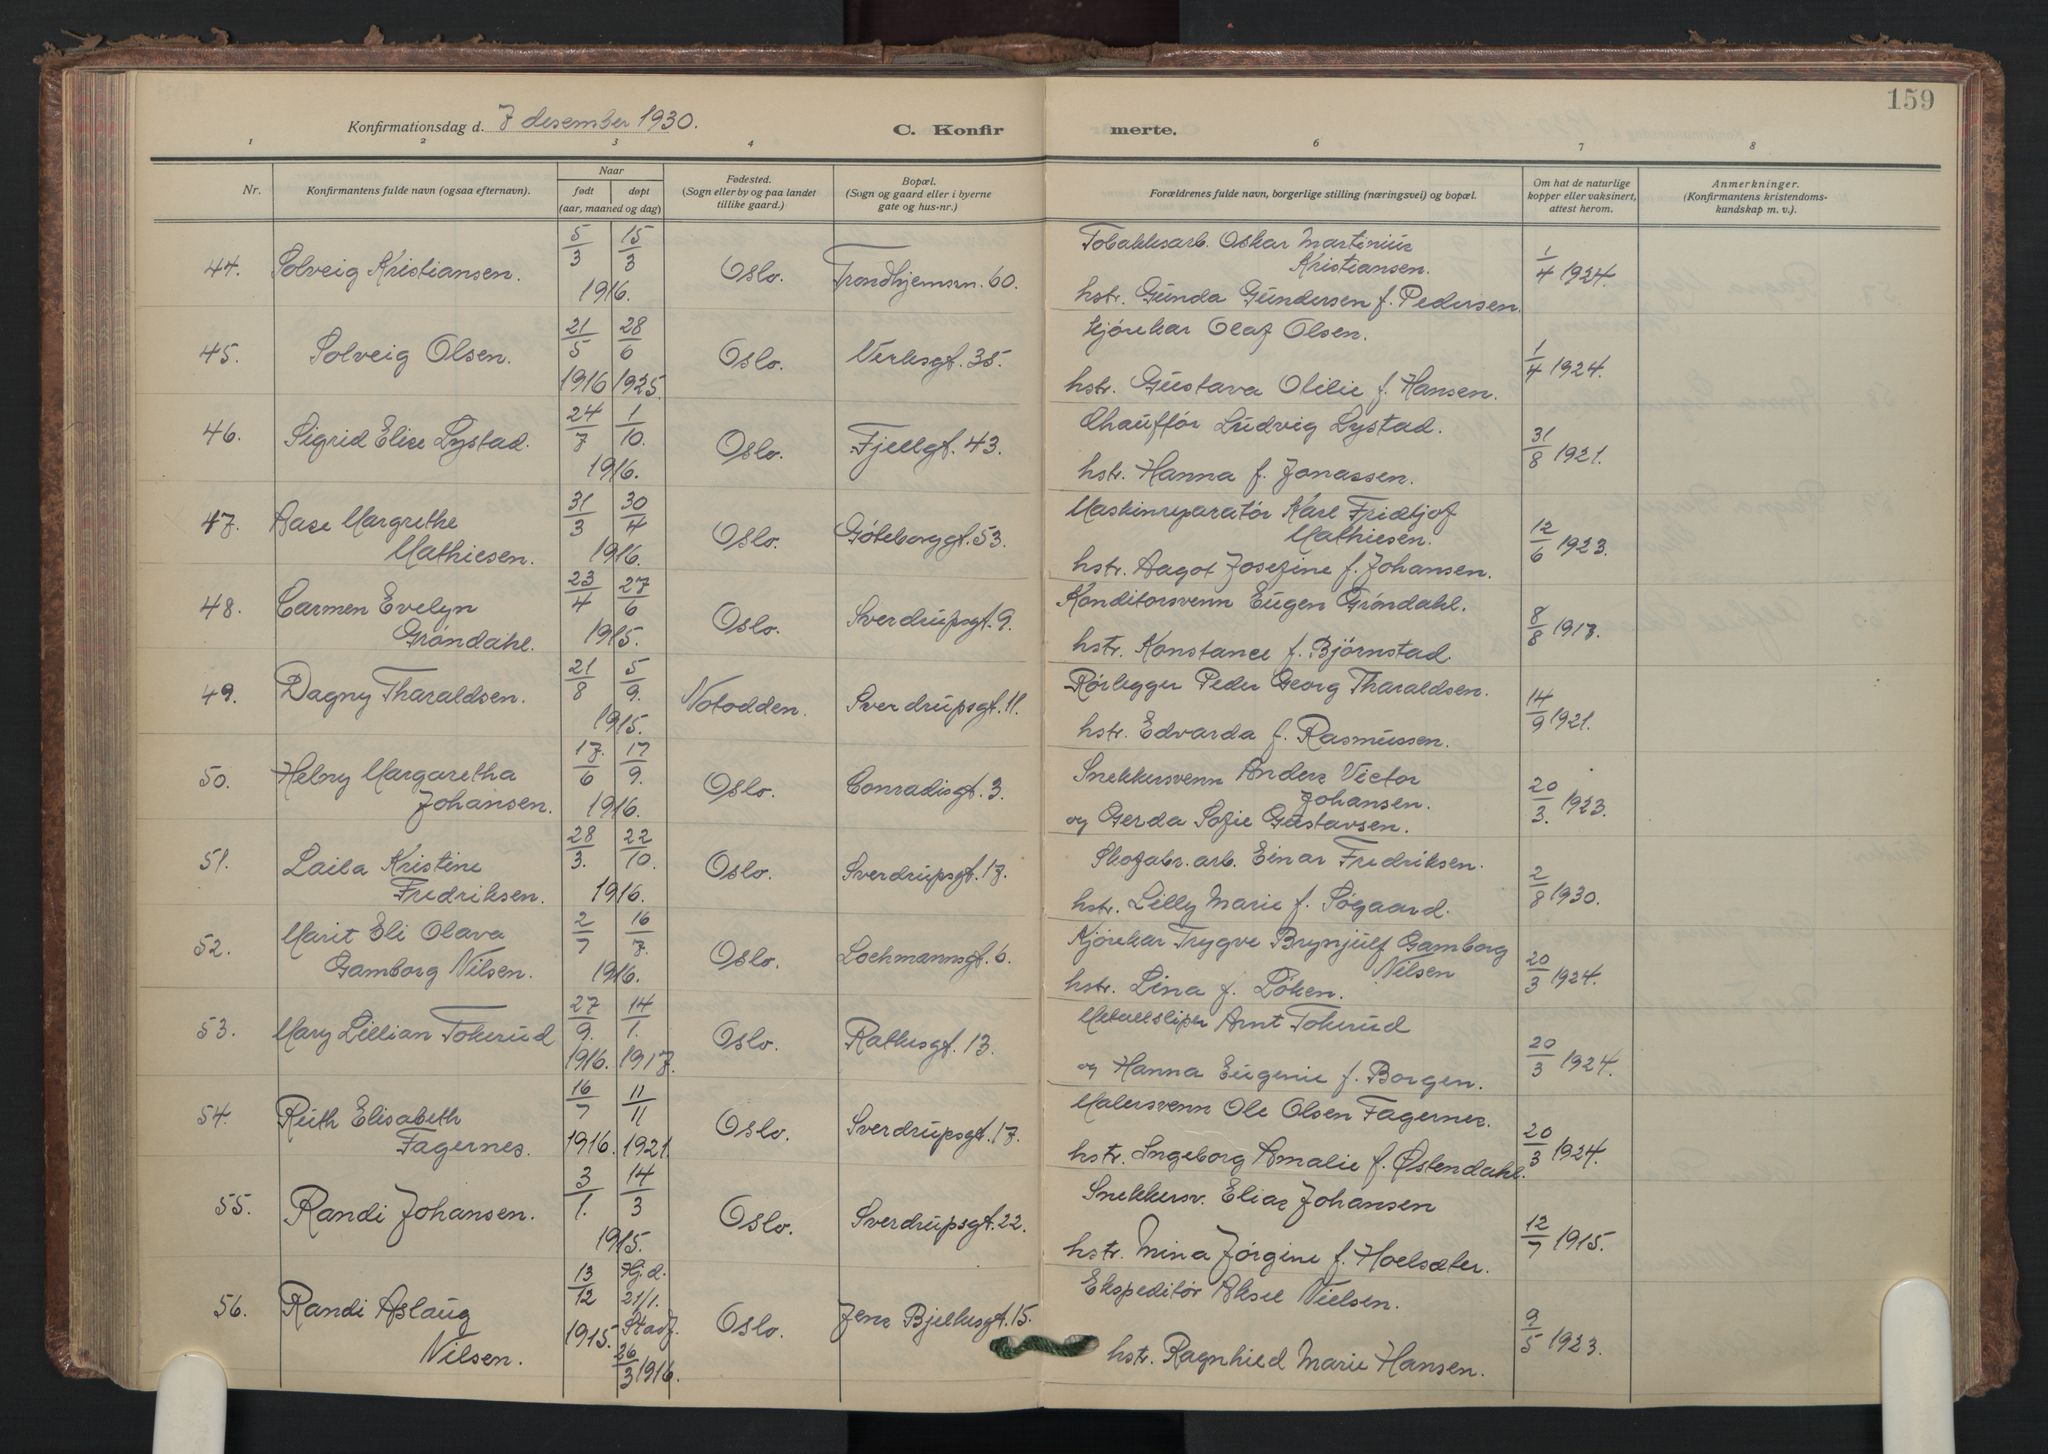 159
Konfirmationsdag d. 7 desember 1930.
C. Konfirmerte.
1 2 3 4 6 7 8
Nr.
Konfirmantens fulde navn (ogsaa efternavn).
Naar
født døpt
(aar, maaned og dag)
Fødested.
(Sogn eller by og paa landet
tillike gaard.)
Bopæl.
(Sogn og gaard eller i byerne
gate og hus-nr.)
Forældrenes fulde navn, borgerlige stilling (næringsvei) og bopæl.
Om hat de naturlige
kopper eller vaksinert,
attest herom.
Anmerkninger.
(Konfirmantens kristendoms-
kundskap m. v.).
44. Solveig Kristiansen. 5/3 15/3 1916. Oslo. Trondhjemsvn. 60.
Tobakksarb. Oskar Martinius
Kristiansen.
hstr. Gunda Gundersen f. Pedersen.
1/4 1924.
45. Solveig Olsen. 21/5 1916 28/6 1925. Oslo. Verksgt. 35.
Kjørekar Olaf Olsen.
hstr. Gustava Otilie f. Hansen.
1/4 1924.
46. Sigrid Elise Lystad. 24/7 1/10. 1916. Oslo. Fjellgt. 43.
Chauffør Ludvig Lystad.
hstr. Hanna f. Jonassen.
31/8 1921.
47. Aase Margrethe
Mathiesen. 31/3 30/4 1916. Oslo. Göteborggt. 53.
Maskinreparatør Karl Fridtjof
Mathiesen.
hstr. Aagot Josefine f. Johansen.
12/6 1923.
48. Carmen Evelyn
Grøndahl. 23/4 27/6 1915. Oslo. Sverdrupsgt. 9.
Konditorsvenn Eugen Grøndahl.
hstr. Konstance f. Bjørnstad.
8/8 1917.
49. Dagny Tharaldsen. 21/8 5/9. 1915. Notodden. Sverdrupsgt. 11.
Rørlegger Peder Georg Tharaldsen.
hstr. Edvarda f. Rasmussen.
14/9 1921.
50. Helny Margaretha
Johansen. 17/6 17/9. 1916. Oslo. Conradisgt. 3.
Snekkersvenn Anders Victor
Johansen.
og Gerda Sofie Gustavsen.
20/3. 1923.
51. Laila Kristine
Fredriksen. 28/3. 22/10. 1916. Oslo. Sverdrupsgt. 17.
Skofabr. arb. Einar Fredriksen.
hstr. Lilly Marie f. Søgaard.
2/8 1930.
52. Marit Eli Olava
Gamborg Nilsen. 2/7 16/7. 1916. Oslo. Lochmannsgt. 6.
Kjørekar Trygve Brynjulf Gamborg
Nilsen
hstr. Lina f. Løken.
20/3 1924.
53. Mary Lillian Tokerud 27/9. 1916. 14/1. 1917. Oslo. Rathkesgt. 13.
Metallsliper Arnt Tokerud
og Hanna Eugenie f. Borgen.
20/3 1924.
54. Ruth Elisabeth
Fagernes. 16/7 1916. 11/11 1921. Oslo. Sverdrupsgt. 17.
Malersvenn Ole Olsen Fagernes.
hstr. Ingeborg Amalie f. Østendahl.
20/3 1924.
55. Randi Johansen. 3/1. 14/3 1915. Oslo. Sverdrupsgt. 22.
Snekkersv. Elias Johansen
hstr. Mina Jørgine f. Hoelsæter.
12/7 1915.
56. Randi Aslaug
Nilsen. 13/12 1915. Hj.d. 21/1. Stadf. 26/3 1916. Oslo. Jens Bjelkesgt. 15.
Ekspeditør Aksel Nielsen.
hstr. Ragnhild Marie Hansen.
9/5 1923.